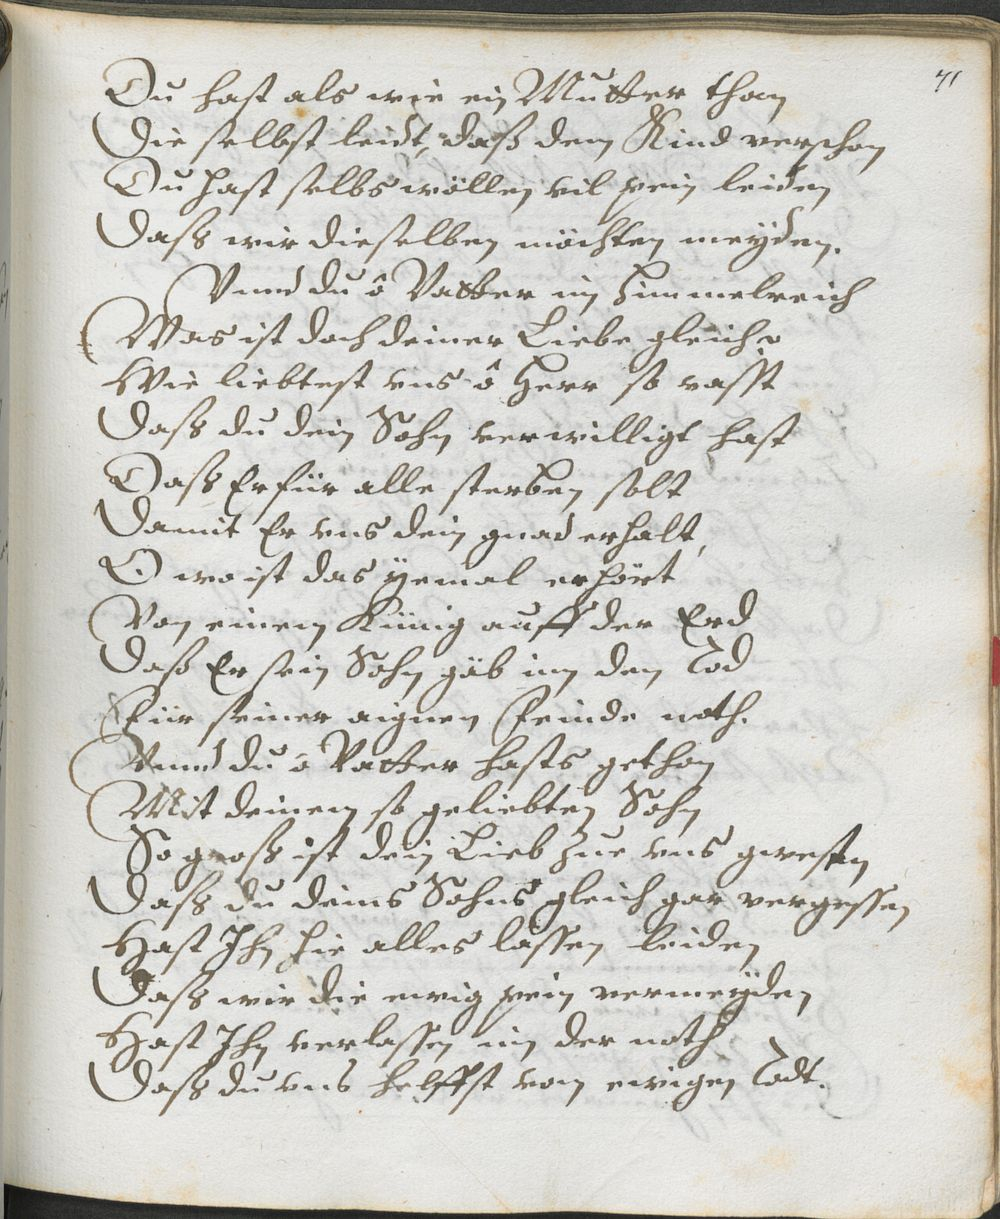 71
Du hast als wie ein Mutter thon
Die selbst leidt, daß dem Kind verschon
Du hast selbs wöllen vil pein leiden
Daß wir dieselben möchten meÿden.
Vnnd du ô Vatter im Himmelreich
Was ist doch deiner Liebe gleich?
Wie liebtest vns ô Herr so vasst
Daß du dein Sohn verwilligt hast
Daß Er für alle sterben solt
Damit Er vns dein gnad erhalt,
O wo ist das ÿemal erhört
Von einem Künig auff der Erd
Daß Er sein Sohn gäb inn den Tod
Für seiner aignen Feinde noth.
Vnnd du ô Vatter hasts gethon
Mit deinem so geliebten Sohn
So groß ist dein Lieb zue vns gwesen
Daß du deins Sohns gleich gar vergessen
Hast Ihn hie alles lassen leiden
Daß wir die ewig pein vermeÿden
Hast Ihn verlassen inn der noth
Daß du vns helffst vom ewigen Todt.